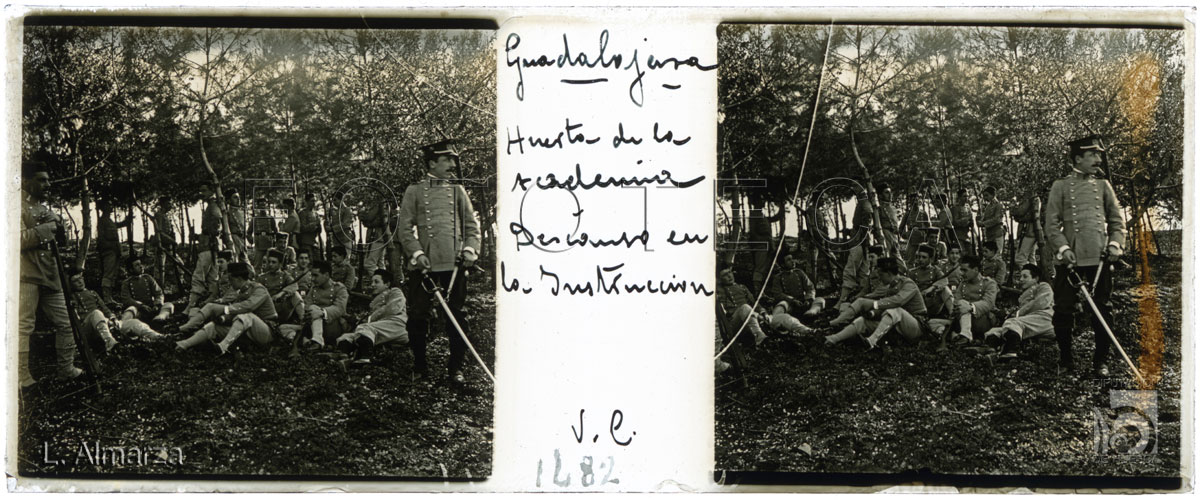 Guadalajara
Huerta de la
Academia
Descanso en
la Instruccion
V. C.
1482
L. Almarza
FOTOTECA